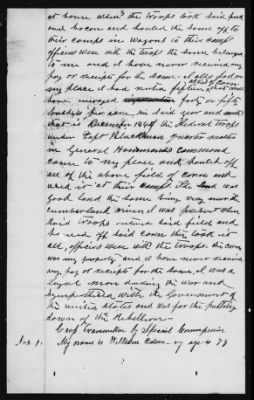 at home when the troops took said pork
and bacon and hauled the same off to
their camps in wagons to their camp
officers were with the troops the same belonged
to me and I have never received any
pay or receipts for the same. I also had on
my place I had under fifteen acres of corn that would
have averaged forty or fifty
bushels per acre in said year and month
that is December 1864 the Federal troops
under Capt Blackman quarter master
in General Hammonds command
came to my place and hauled off
all of the above field of corn and
used it at their camps The land was
good land the same being very much
cumberland river it was freshest when
said troops entered said field and
he used off said corn they took it
all, officers were with the troops. the corn
was my property and I have never received
any pay or receipts for the same, I was a
loyal man during the war and
sympathized with the Government of
the United States and was for the putting
down of the Rebellion
Cross Examination by Special Commissioner
Ans 1. My name is William my age is 79